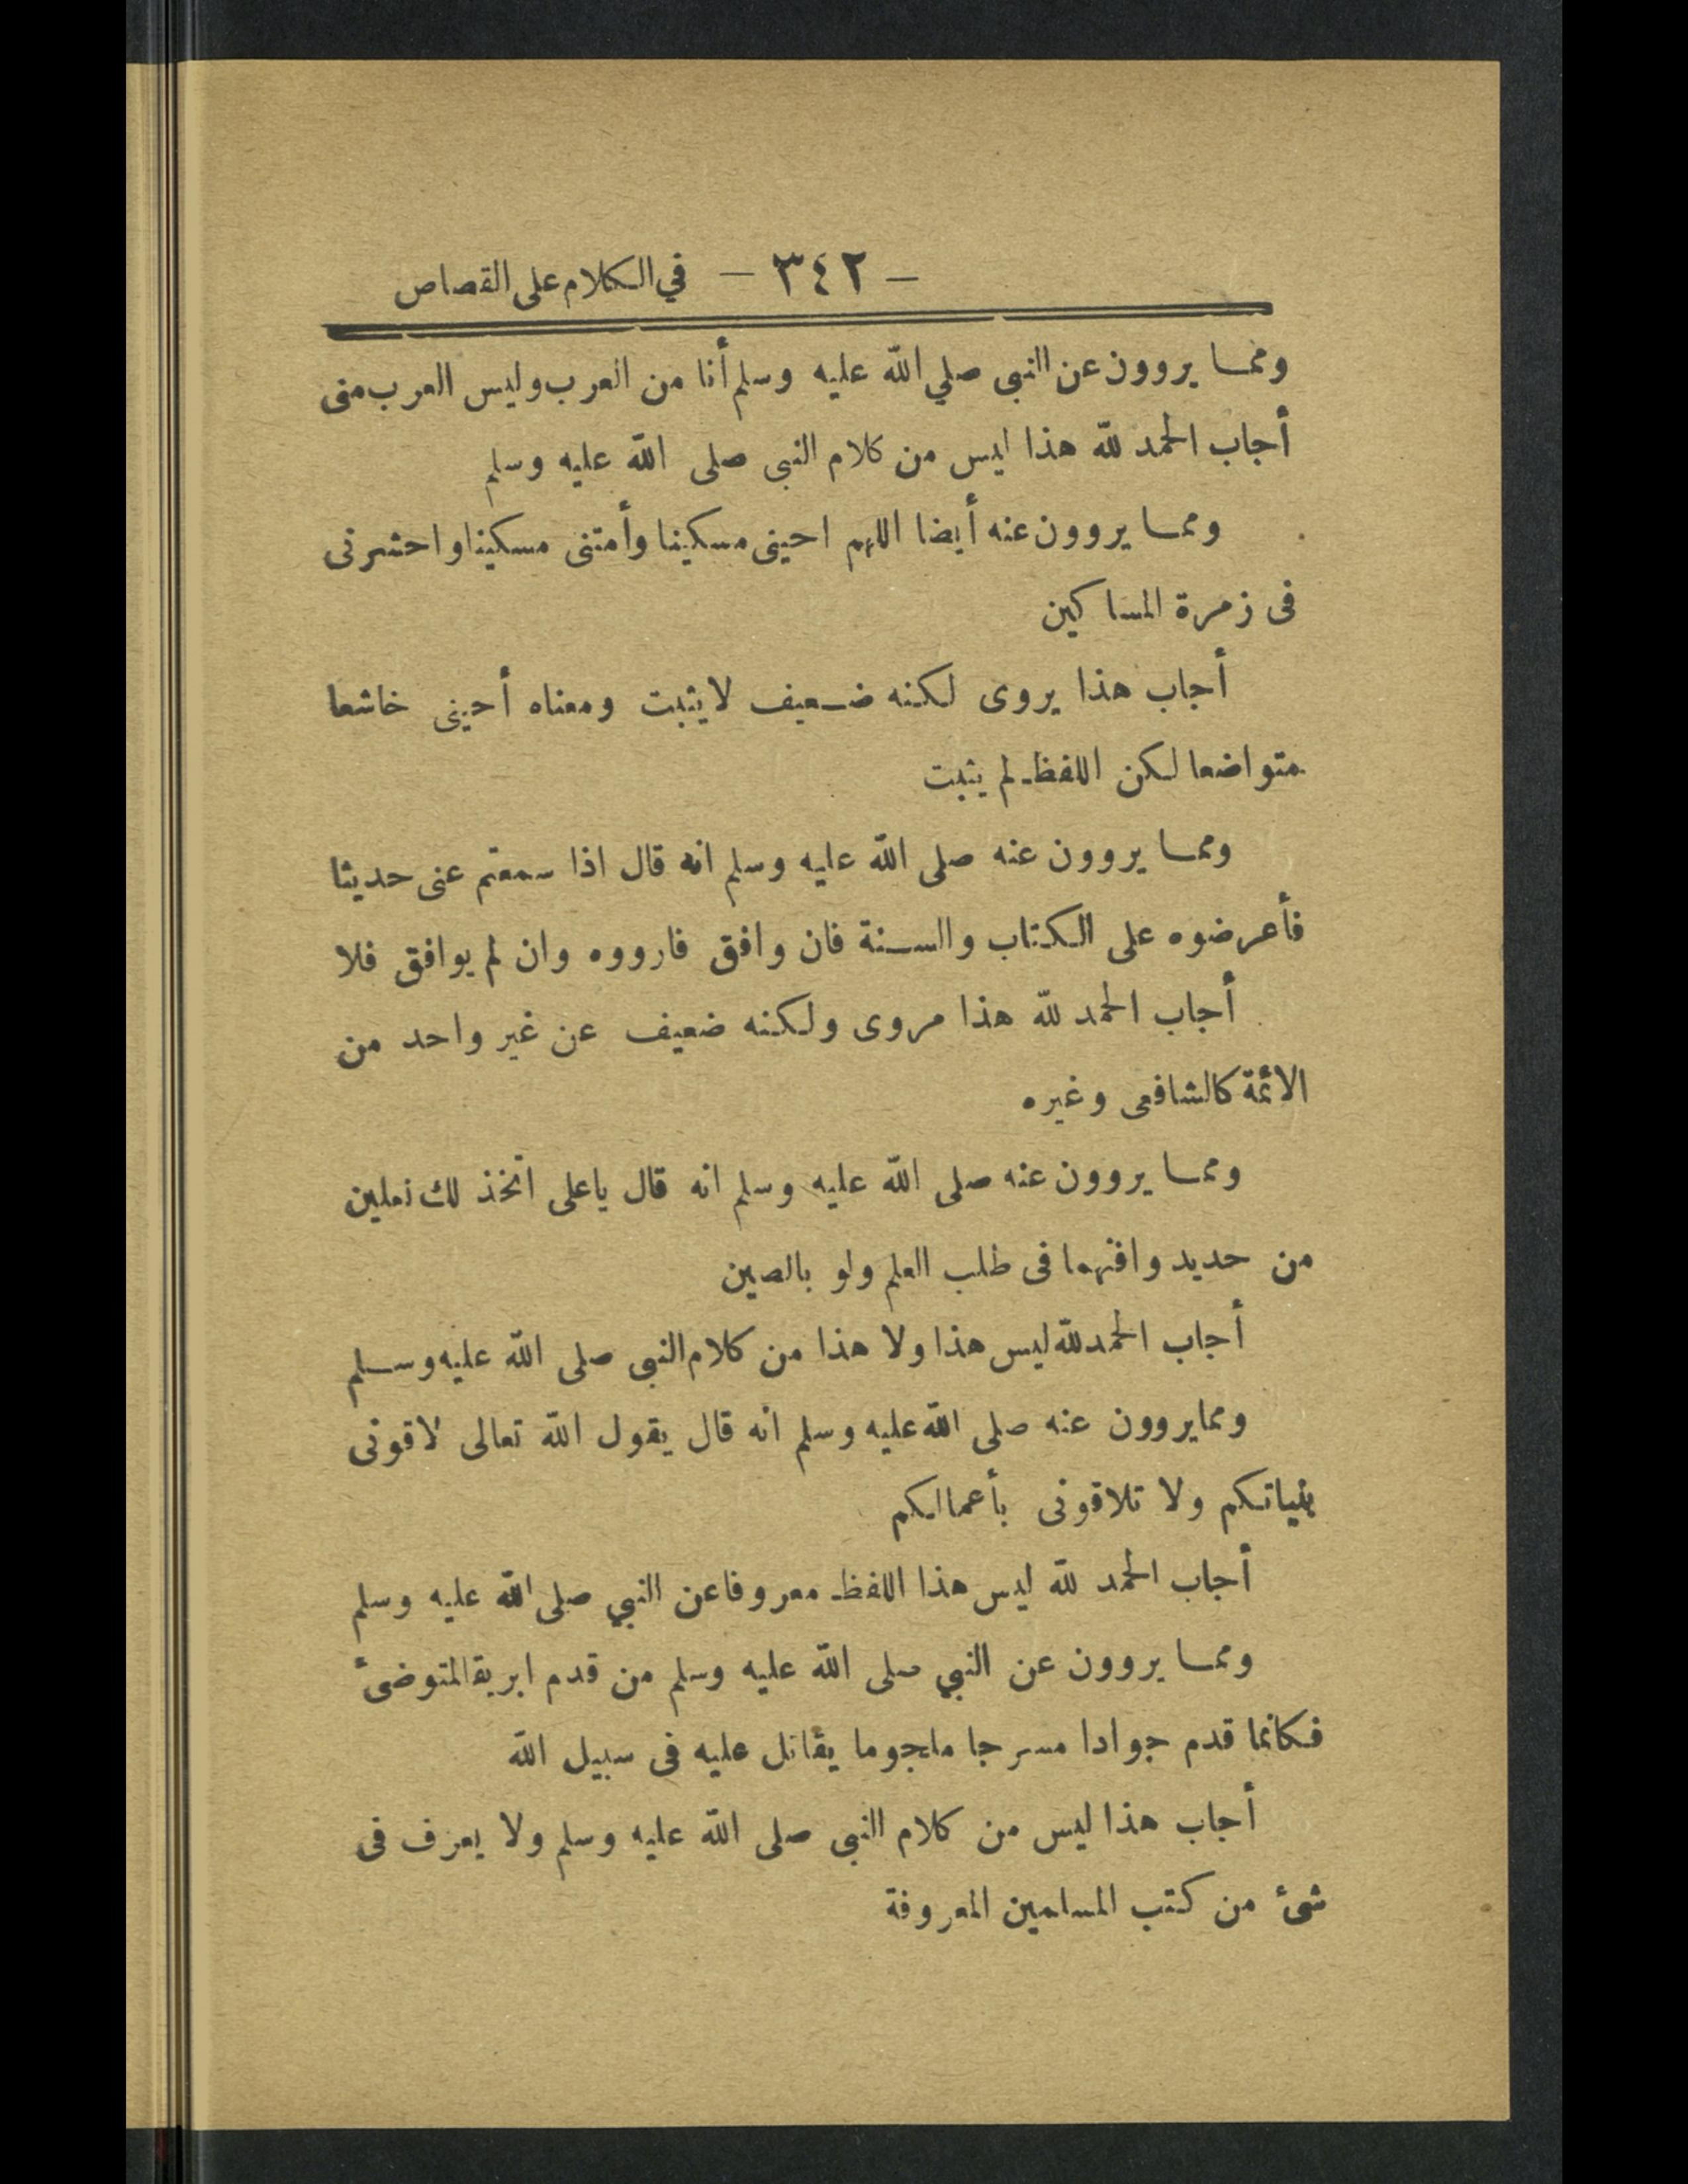 - ٣٤٢ - في الكلام على القصاص
ومما يروون عن النبى صلي الله عليه وسلم أنا من العرب وليس العرب منى
أجاب الحمد لله هذا ليس من كلام النبى صلى الله عليه وسلم
ومما يروون عنه أيضا اللهم احينى مسكينا وأمتنى مسكينا واحشرنى
فى زمرة المساكين
أجاب هذا يروى لكنه ضعيف لايثبت ومعناه أحينى خاشعا
متواضعا لكن اللفظ لم يثبت
ومما يروون عنه صلى الله عليه وسلم انه قال اذا سمعتم عنى حديثا
فأعرضوه على الكتاب والسنة فان وافق فارووه وان لم يوافق فلا
أجاب الحمد لله هذا مروى ولكنه ضعيف عن غير واحد من
الائمة كالشافعى وغيره
ومما يروون عنه صلى الله عليه وسلم انه قال ياعلى اتخذ لك نعلين
من حديد وافنهما فى طلب العلم ولو بالصين
أجاب الحمد لله ليس هذا ولا هذا من كلام النبى صلى الله عليه وسلم
ومما يروون عنه صلى الله عليه وسلم انه قال يقول الله تعالى لاقونى
بنياتكم ولا تلاقونى بأعمالكم
أجاب الحمد لله ليس هذا اللفظ معروفا عن النبي صلى الله عليه وسلم
ومما يروون عن النبي صلى الله عليه وسلم من قدم ابريقا لمتوضئ
فكانما قدم جوادا مسرجا ملجوما يقاتل عليه فى سبيل الله
أجاب هذا ليس من كلام النبى صلى الله عليه وسلم ولا يعرف فى
شئ من كتب المسلمين المعروفة